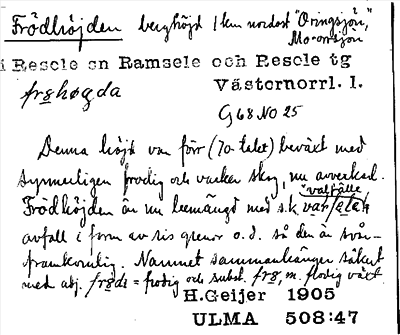 Frödhöjden berghöjd 1 km nordost "Oringsjön,"
Mo-orrsjön
i Resele sn Ramsele och Resele tg
frøhøgda Västernorrl. l.
G 68 NO 25
Denna höjd var förr (70-talet) beväxt med
synnerligen frodig och vacker skog, nu avverkad.
"valfälle"
Frödhöjden är nu beemängd med s.k.
avfall i form av ris grenor o.d. så den är svår-
framkomlig. Namnet sammanhänger säkert
med adj. = frodig och subst. frø, m. frodig växt
H.Geijer 1905
ULMA 508:47